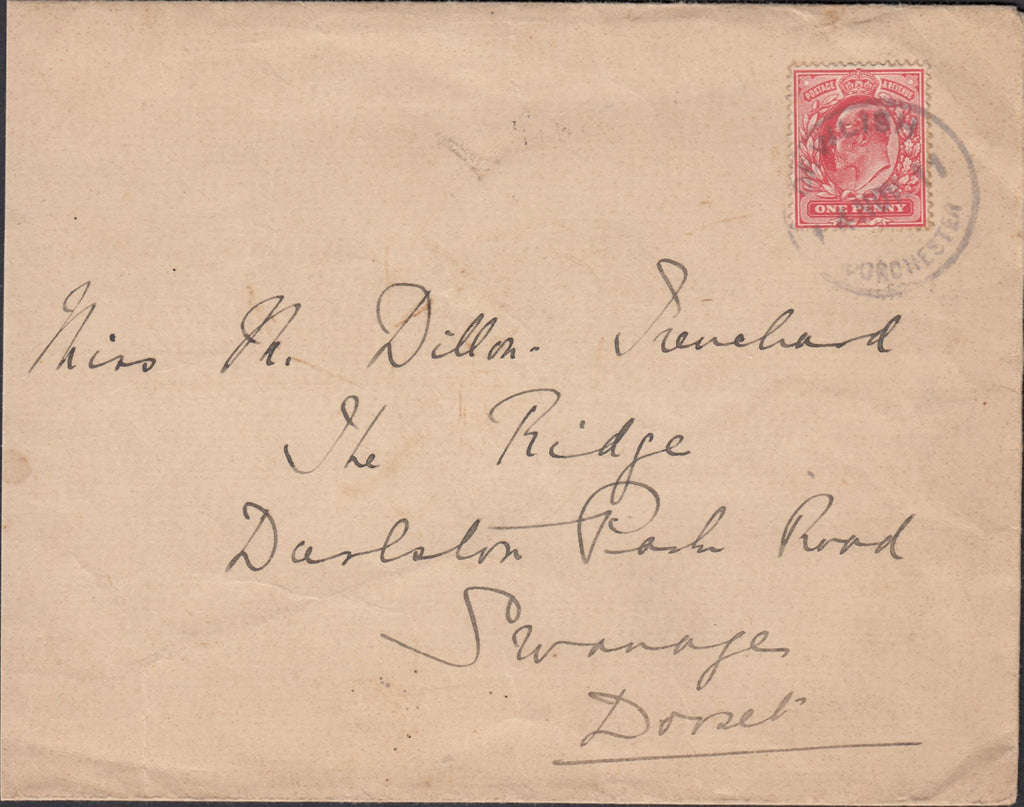 POSTAGE & REVENUE
ONE PENNY
11
DORCHESTER
Miss M. Dillon-Trenchard
The Ridge
Durlston Park Road
Swanage
Dorset